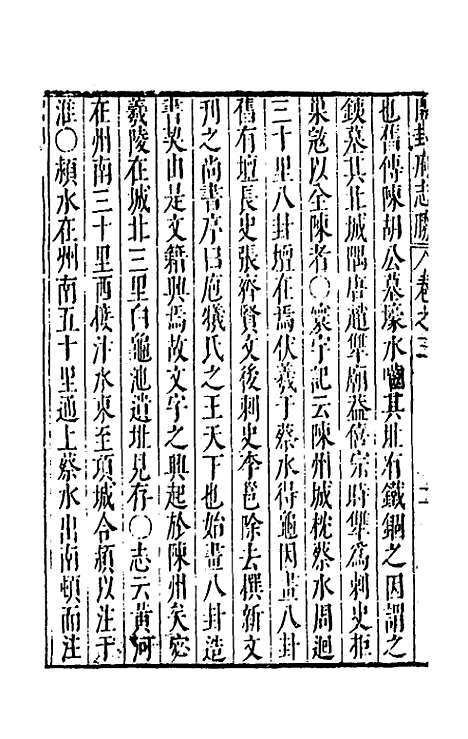 開封府志勝 卷之三
也舊傳陳胡公墓壕水嚙其址有鐵錮之因謂之
鐵墓其北城隅唐趙犨廟葢僖宗時犨為刺史拒
巢寇以全陳者〇寰宇記云陳州城枕蔡水周迴
三十里八卦壇在焉伏羲于蔡水得龜因畫八卦
舊有壇長史張齊賢文後刺史李邕除去撰新文
刊之尚書序曰庖犧氏之王天下也始畫八卦造
書契由是文籍興焉故文字之興起於陳州矣宓
羲陵在城北三里白龜池遺址見存〇志云黃河
在州南三十里西接汴水東至項城合潁以注于
淮〇潁水在州南五十里通上蔡水出南頓而注